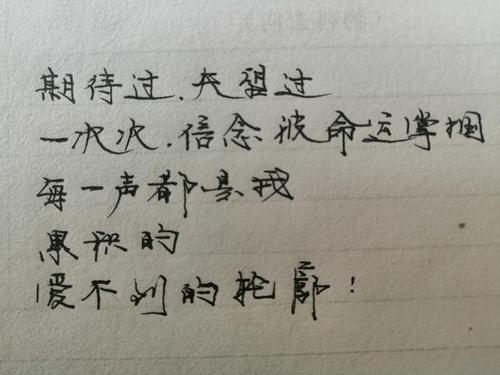 期待过、失望过
一次次、信念被命运掌掴
每一声都是我
累积的
爱不到的轮廓！